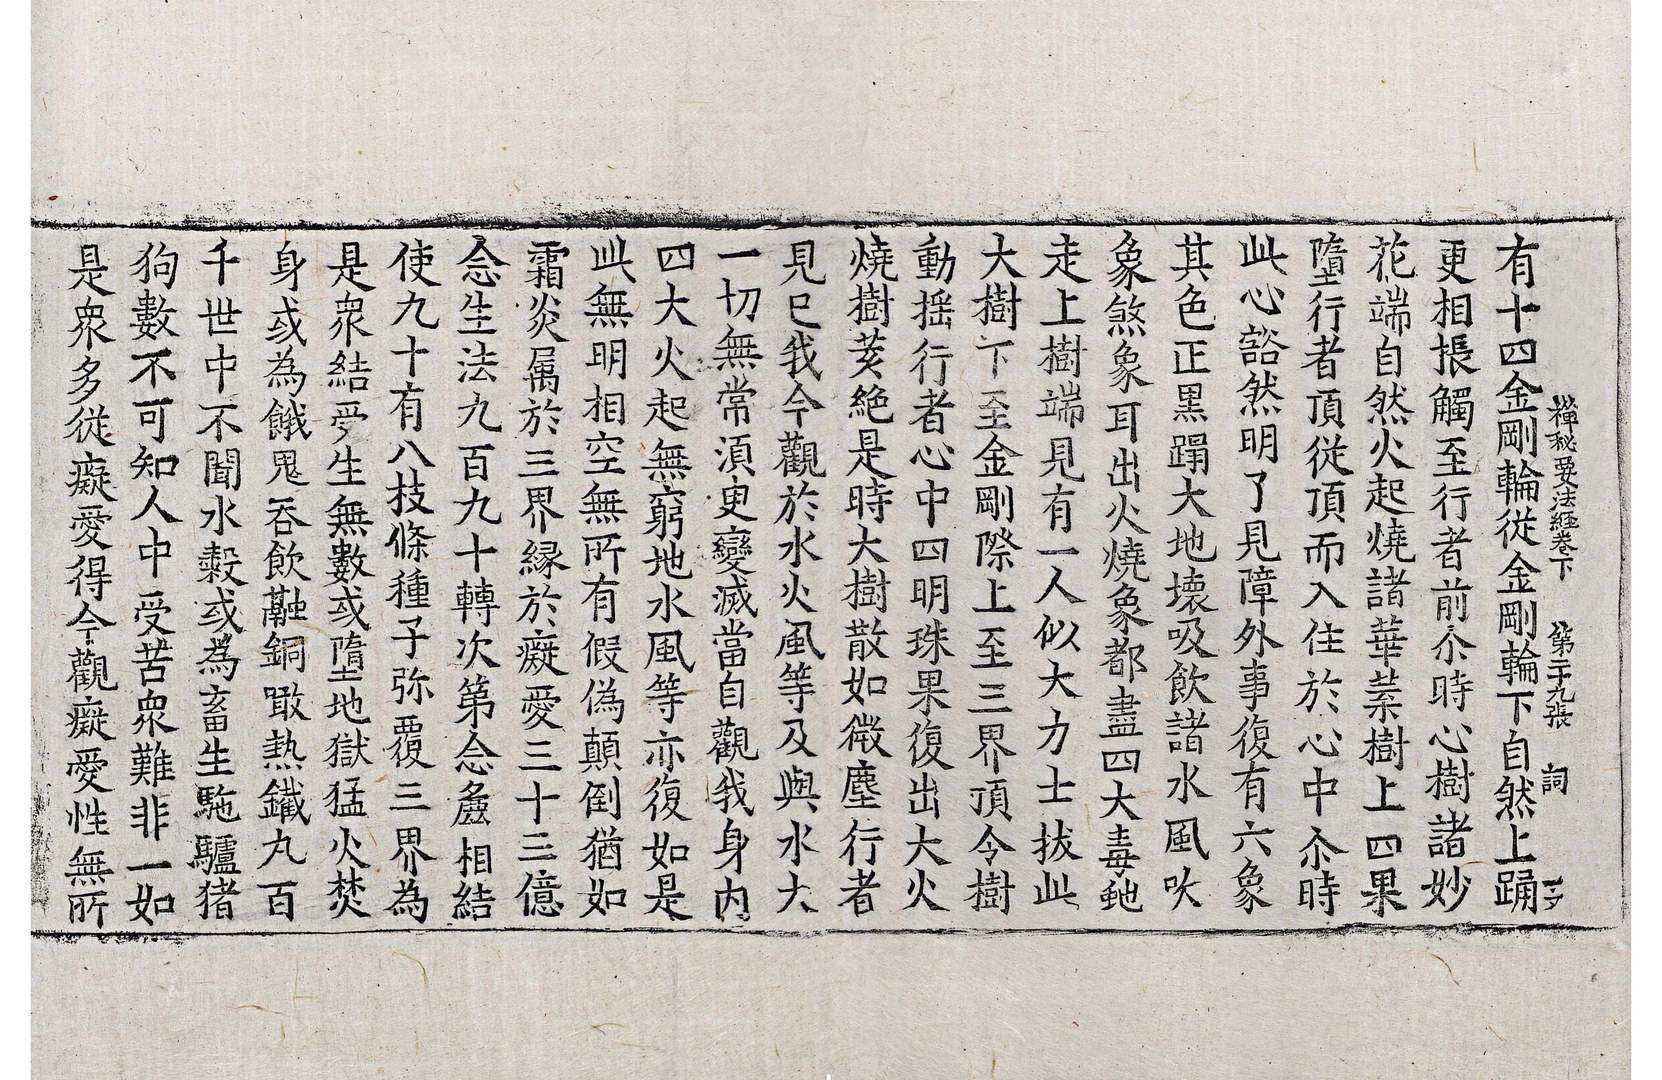 禪秘要法經卷下　第二十九張　詞
有十四金剛輪從金剛輪下自然上踊
更相掁觸至行者前尒時心樹諸妙
花端自然火起燒諸華葉樹上四果
墮行者頂從頂而入住於心中尒時
此心豁然明了見障外事復有六象
其色正黒蹋大地壊吸飲諸水風吹
象煞象耳出火燒象都盡四大毒虵
走上樹端見有一人似大力士拔此
大樹下至金剛際上至三界頂令樹
動揺行者心中四明珠果復出大火
燒樹荄絶是時大樹散如微塵行者
見已我今觀於水火風等及與水大
一切無常湏臾變滅當自觀我身内
四大火起無窮地水風等亦復如是
此無明相空無所有假偽顛倒猶如
霜炎属於三界縁於癡愛三十三億
念生法九百九十轉次第念麁相結
使九十有八技條種子弥覆三界為
是衆結受生無數或墮地獄猛火焚
身或為餓鬼吞飲融銅噉熱鐵丸百
千世中不聞水穀或為畜生駞驢猪
狗數不可知人中受苦衆難非一如
是衆多從癡愛得今觀癡愛性無所